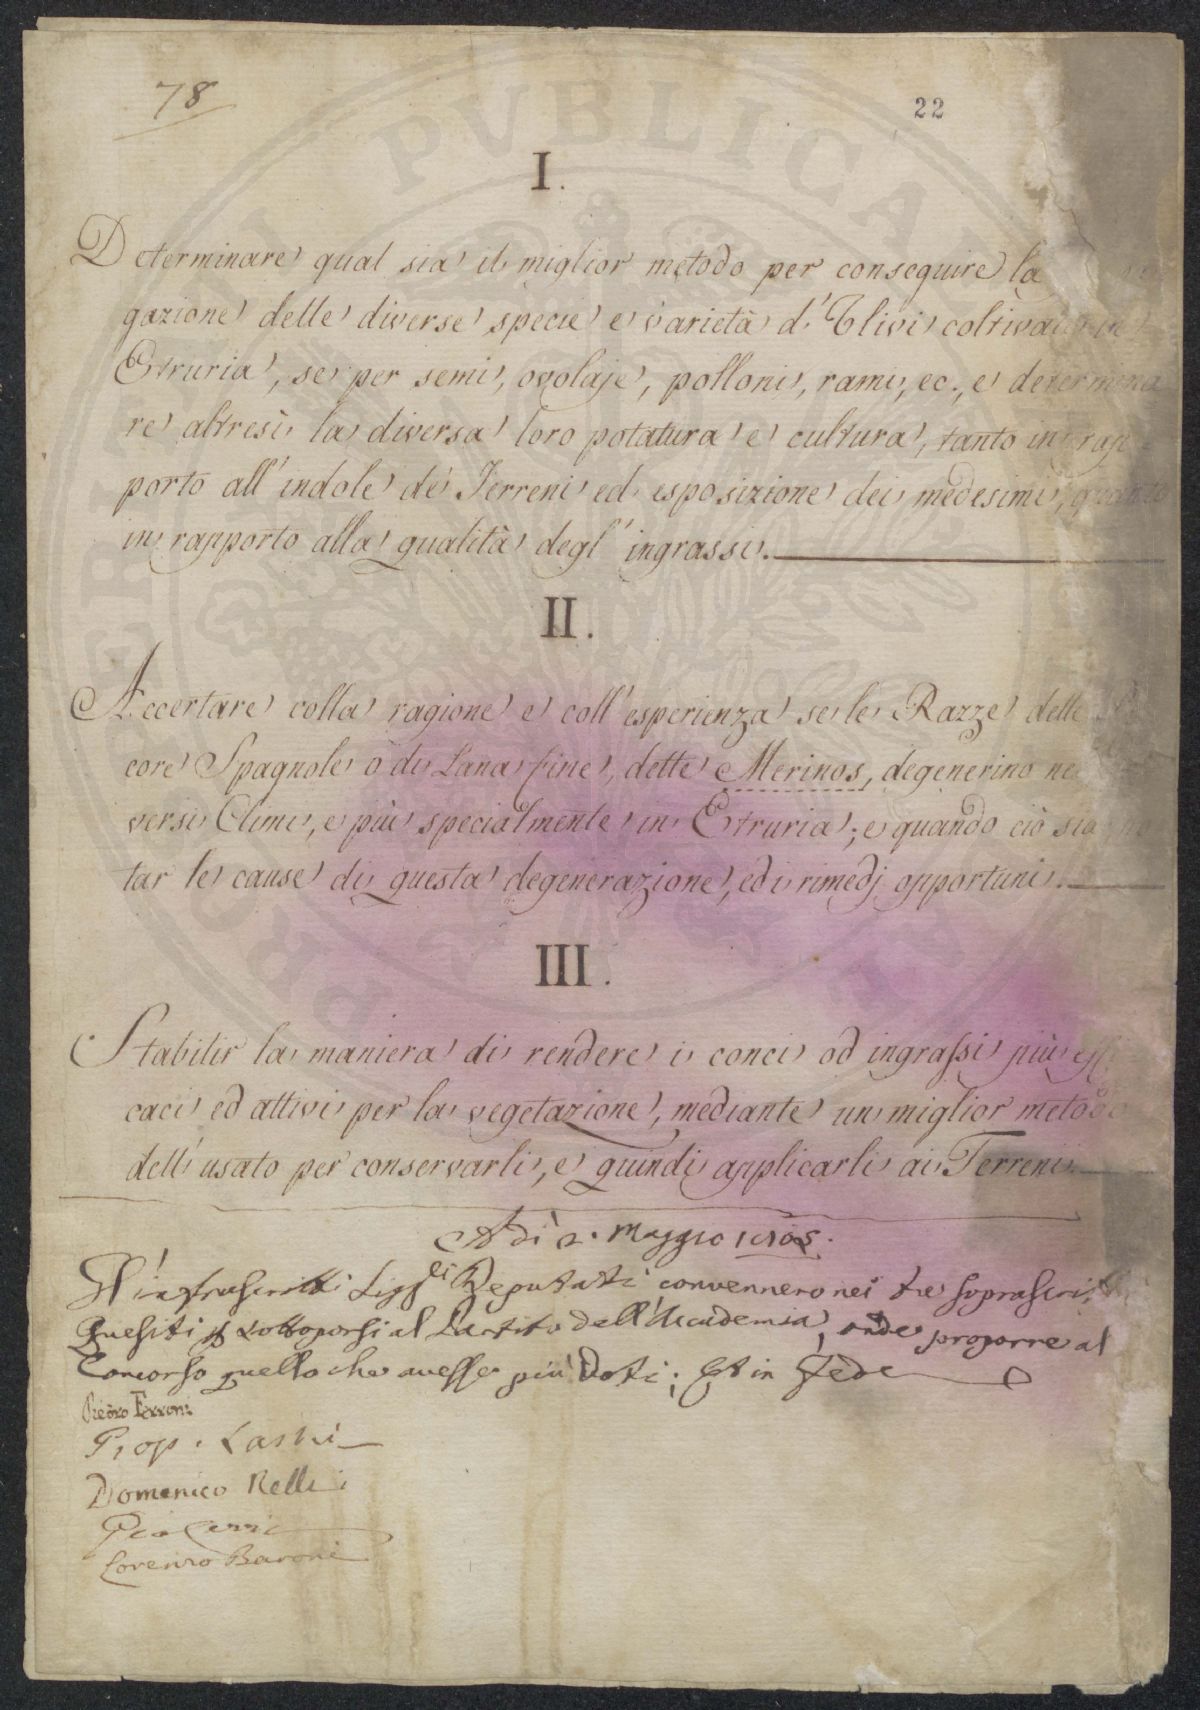 78
22
I.
Determinare qual sia il miglior metodo per conseguire la
gazione delle diverse specie e varietà d'Ulivi coltivati in
Etruria, se per semi, ovolaje, polloni, rami, ec., e determina
re altresì la diversa loro potatura e cultura, tanto in rap
porto all'indole de' Terreni ed esposizione dei medesimi, quanto
in rapporto alla qualità degl'ingrassi.
II.
Accertare colla ragione e coll'esperienza se le Razze delle
core Spagnole o di Lana fine, dette Merinos, degenerino nei
versi Climi, e più specialmente in Etruria; e quando ciò sia, no
tar le cause di questa degenerazione, ed i rimedj opportuni.
III.
Stabilir la maniera di rendere i conci od ingrassi più effi
caci ed attivi per la vegetazione, mediante un miglior metodo
dell'usato per conservarli, e quindi applicarli ai Terreni.
Adì 2. Maggio 1805.
Gl'infrascritti Sigg.ri Deputati convennero nei tre soprascritti
Quesiti p sottoporsi al Partito dell'Accademia, onde proporre al
Concorso quello che avesse più Voti; Et in Fede
Pietro Ferroni
Prop. Lastri
Domenico Nelli
Lorenzo Baroni